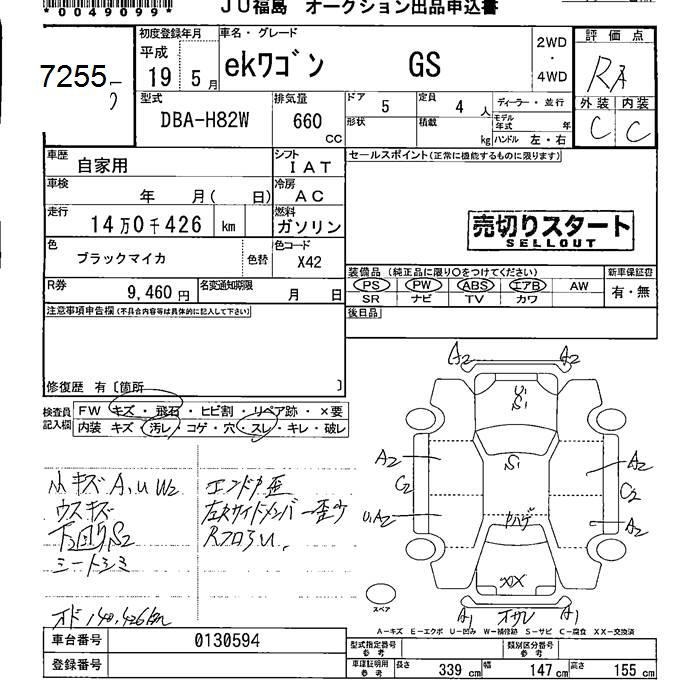 *0049099*
JU福島 オークション出品申込書
7255
初度登録年月
平成
19 5月
車名・グレード
ekワゴン GS
2WD
・
4WD
評価点
RA
外装 内装
C C
型式
DBA-H82W
排気量
660
CC
ドア 5
定員 4 人
ディーラー・並行
形状
積載 kg
モデル年式 年
ハンドル 左・右
車歴
自家用
シフト
IAT
セールスポイント(正常に機能するものに限ります)
車検
年 月( 日)
冷房
AC
走行
14万0千426 km
燃料
ガソリン
売切りスタート
SELLOUT
色
ブラックマイカ
色替
色コード
X42
装備品(純正品に限り○をつけてください)
新車保証書
PS PW ABS エアB AW
有・無
SR ナビ TV カワ
R券
9,460円
名変通知期限
月 日
後日品
注意事項申告欄(不具合内容等は具体的に記入して下さい)
修復歴 有〔箇所 〕
検査員記入欄
FW キズ・飛石・ヒビ割・リペア跡・×要
内装 キズ・汚レ・コゲ・穴・スレ・キレ・破レ
小キズA,U W2
ウスキズ
下回りS2
シートシミ
オド140,426km
左サイドメンバー歪
Rフロアu.
A2 A2
Si
A2 A2
C2 C2
U,A2 A2
XX
A1 A1
スペア
A―キズ E―エクボ U―凹み W―補修跡 S―サビ C―腐食 XX―交換済
車台番号
0130594
型式指定番号
参考
類別区分番号
参考
登録番号
車庫証明用
参考
長さ 339 cm
幅 147 cm
高さ 155 cm